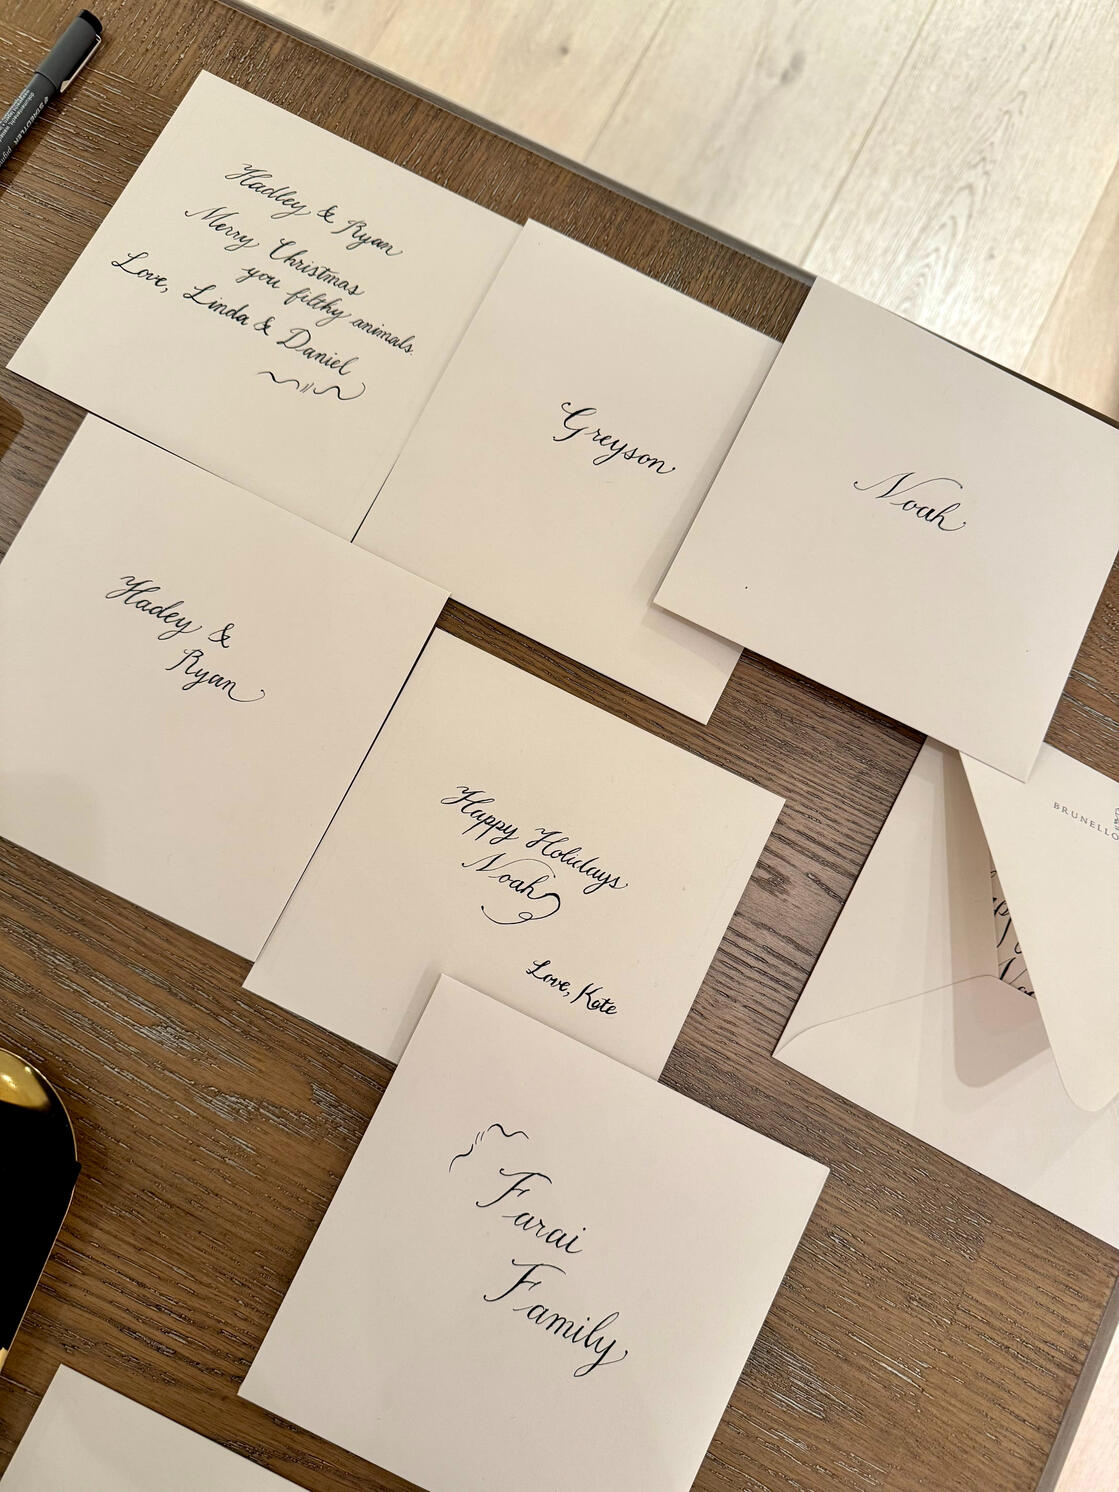 STAEDTLER
Hadley & Ryan
Merry Christmas
you filthy animals.
Love, Linda & Daniel
Greyson
Noah
Hadey &
Ryan
Happy Holidays
Noah
Love, Kate
BRUNELLO
Farai
Family